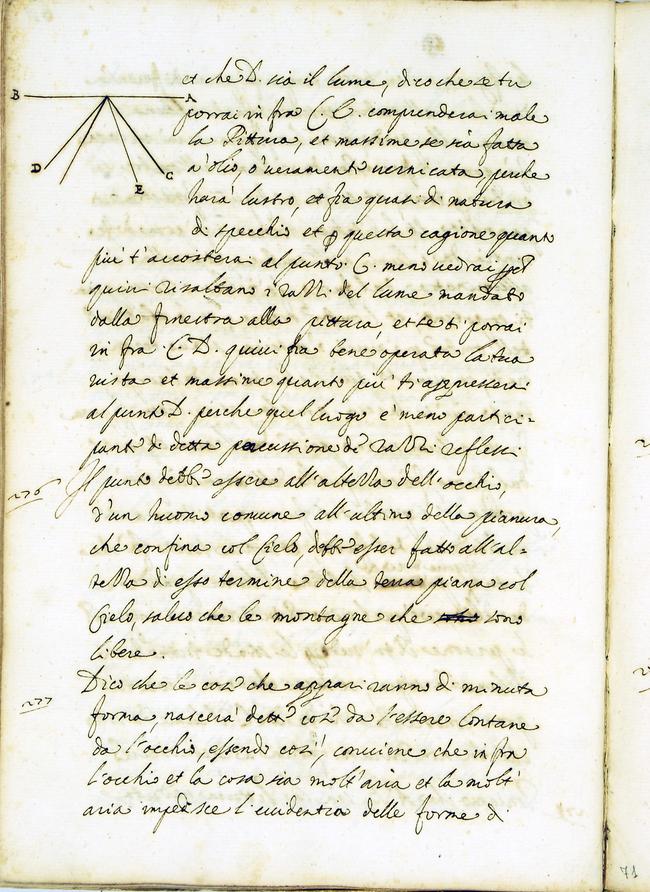 et che D. sia il lume, dico che se tu
B A
porrai in fra C. E. comprenderai male
la Pittura, et massime se sia fatta
a' olio, o' veramente vernicata, perche
D E C
harà lustro, et fia quasi di natura
di specchio, et p questa cagione quanto
più t'accosterai al punto C. meno vedrai
quivi risaltano i razzi del lume mandato
dalla finestra alla pittura, et se ti porrai
in fra C. D. quivi fia bene operata la tua
vista et massime quanto più ti appresserai
al punto D. perche quel luogo è meno partici=
pante di detta percussione de' razzi reflessi
276 Il punto debb' essere all'altezza dell'occhio,
d'un huomo comune all'ultimo della pianura,
che confina col Cielo, debb' esser fatto all'al=
tezza di esso termine della terra piana col
Cielo, salvo che le montagne che sono
libere.
277 Dico che le cose che appariranno di minuta
forma, nascerà dette cose da l'essere lontane
da l'occhio, essendo così, conviene che in fra
l'occhio et la cosa sia molt'aria et la molt'
aria impedisce l'evidentia delle forme di
71